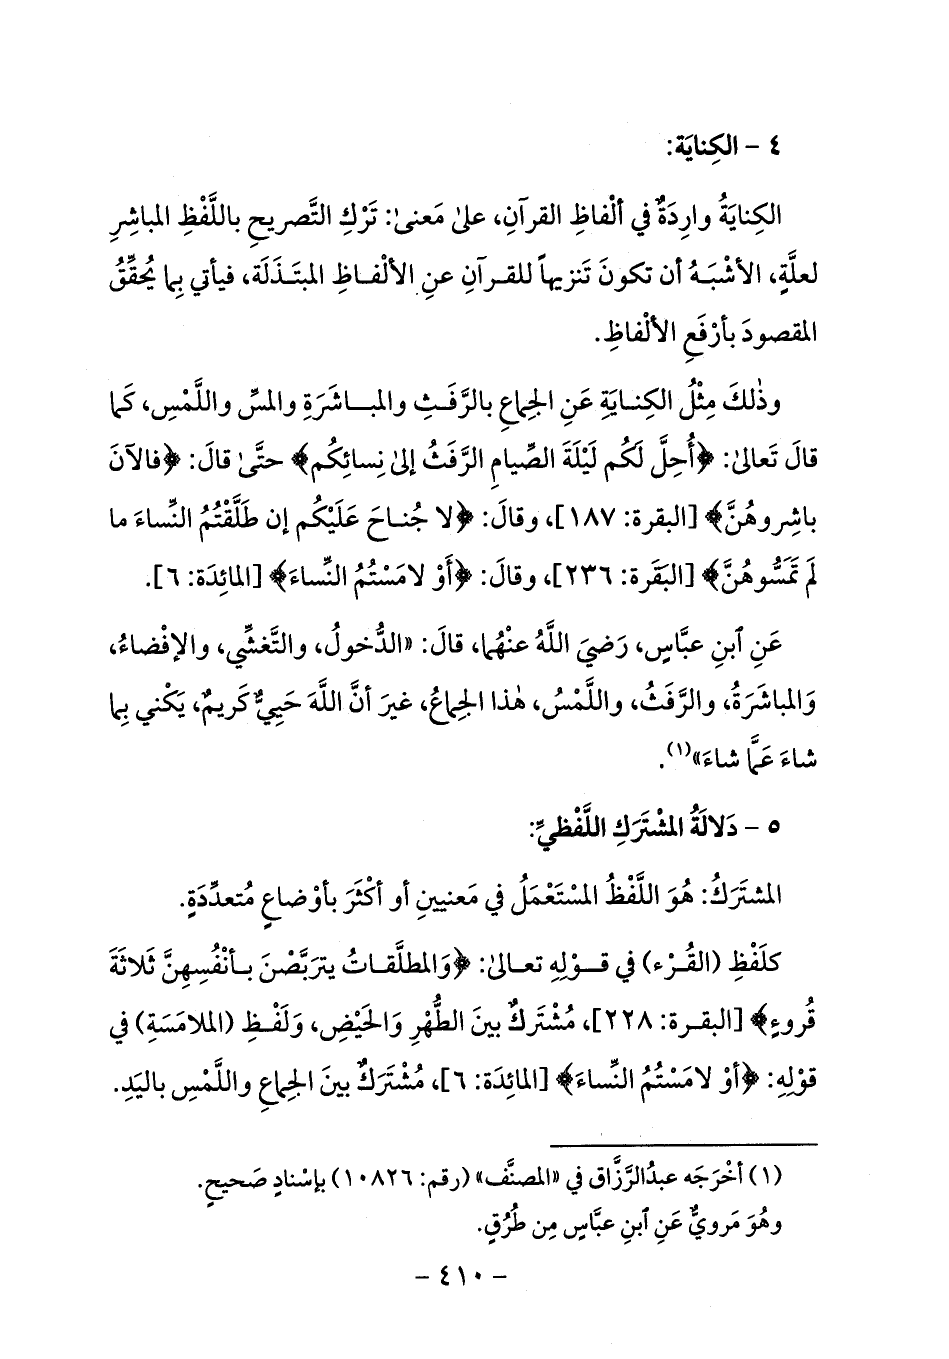 ٤ - الكِنايَة:
الكِنايَةُ وارِدَةٌ في ألْفاظِ القرآنِ، علىٰ مَعنىٰ: تَرْكِ التَّصريحِ باللَّفْظِ المباشِرِ
لعلَّةٍ، الأشْبَهُ أن تكونَ تَنزيهاً للقرآنِ عنِ الألْفاظِ المبتَذَلَة، فيأتي بِما يُحقِّقُ
المقصودَ بأرْفَعِ الألْفاظِ.
وذٰلكَ مِثْلُ الكِنايَةِ عَنِ الجِماعِ بالرَّفَثِ والمباشَرَةِ والمسِّ واللَّمْسِ، كَما
قالَ تَعالىٰ: ﴿أُحِلَّ لَكُم لَيْلَةَ الصِّيامِ الرَّفَثُ إلىٰ نِسائِكُم﴾ حتَّىٰ قالَ: ﴿فالآنَ
باشِروهُنَّ﴾ [البقرة: ١٨٧]، وقالَ: ﴿لا جُناحَ عَلَيْكُم إن طَلَّقْتُمُ النِّساءَ ما
لَم تَمَسُّوهُنَّ﴾ [البَقَرة: ٢٣٦]، وقالَ: ﴿أَوْ لامَسْتُمُ النِّساءَ﴾ [المائِدَة: ٦].
عَنِ ٱبنِ عبَّاسٍ، رَضيَ اللَّهُ عنْهُما، قالَ: «الدُّخولُ، والتَّغشِّي، والإفْضاءُ،
وَالمباشَرَةُ، والرَّفَثُ، واللَّمْسُ، هٰذا الجِماعُ، غيرَ أنَّ اللَّهَ حَييٌّ كَريمٌ، يَكْني بِما
شاءَ عَمَّا شاءَ»(١).
٥ - دَلالَةُ المشْتَرَكِ اللَّفْظيِّ:
المشتَرَكُ: هُوَ اللَّفْظُ المسْتَعْمَلُ في مَعنيينِ أو أكْثَرَ بأوْضاعٍ مُتعدِّدَةٍ.
كلَفْظِ (القُرْء) في قولِهِ تعالىٰ: ﴿وَالمطلَّقاتُ يتربَّصْنَ بأنْفُسِهِنَّ ثَلاثَةَ
قُروءٍ﴾ [البقرة: ٢٢٨]، مُشْتَركٌ بينَ الطُّهْرِ وَالحَيْضِ، وَلَفْظِ (الملامَسَةِ) في
قوْلِهِ: ﴿أوْ لامَسْتُمُ النِّساءَ﴾ [المائِدَة: ٦]، مُشْتَركٌ بينَ الجِماعِ واللَّمْسِ باليَدِ.
(١) أخْرَجَه عبدُالرَّزَّاق في «المصنَّف» (رقم: ١٠٨٢٦) بإسْنادٍ صَحيحٍ.
وهُوَ مَرويٌّ عَنِ ٱبنِ عبَّاسٍ مِن طُرُقٍ.
- ٤١٠ -